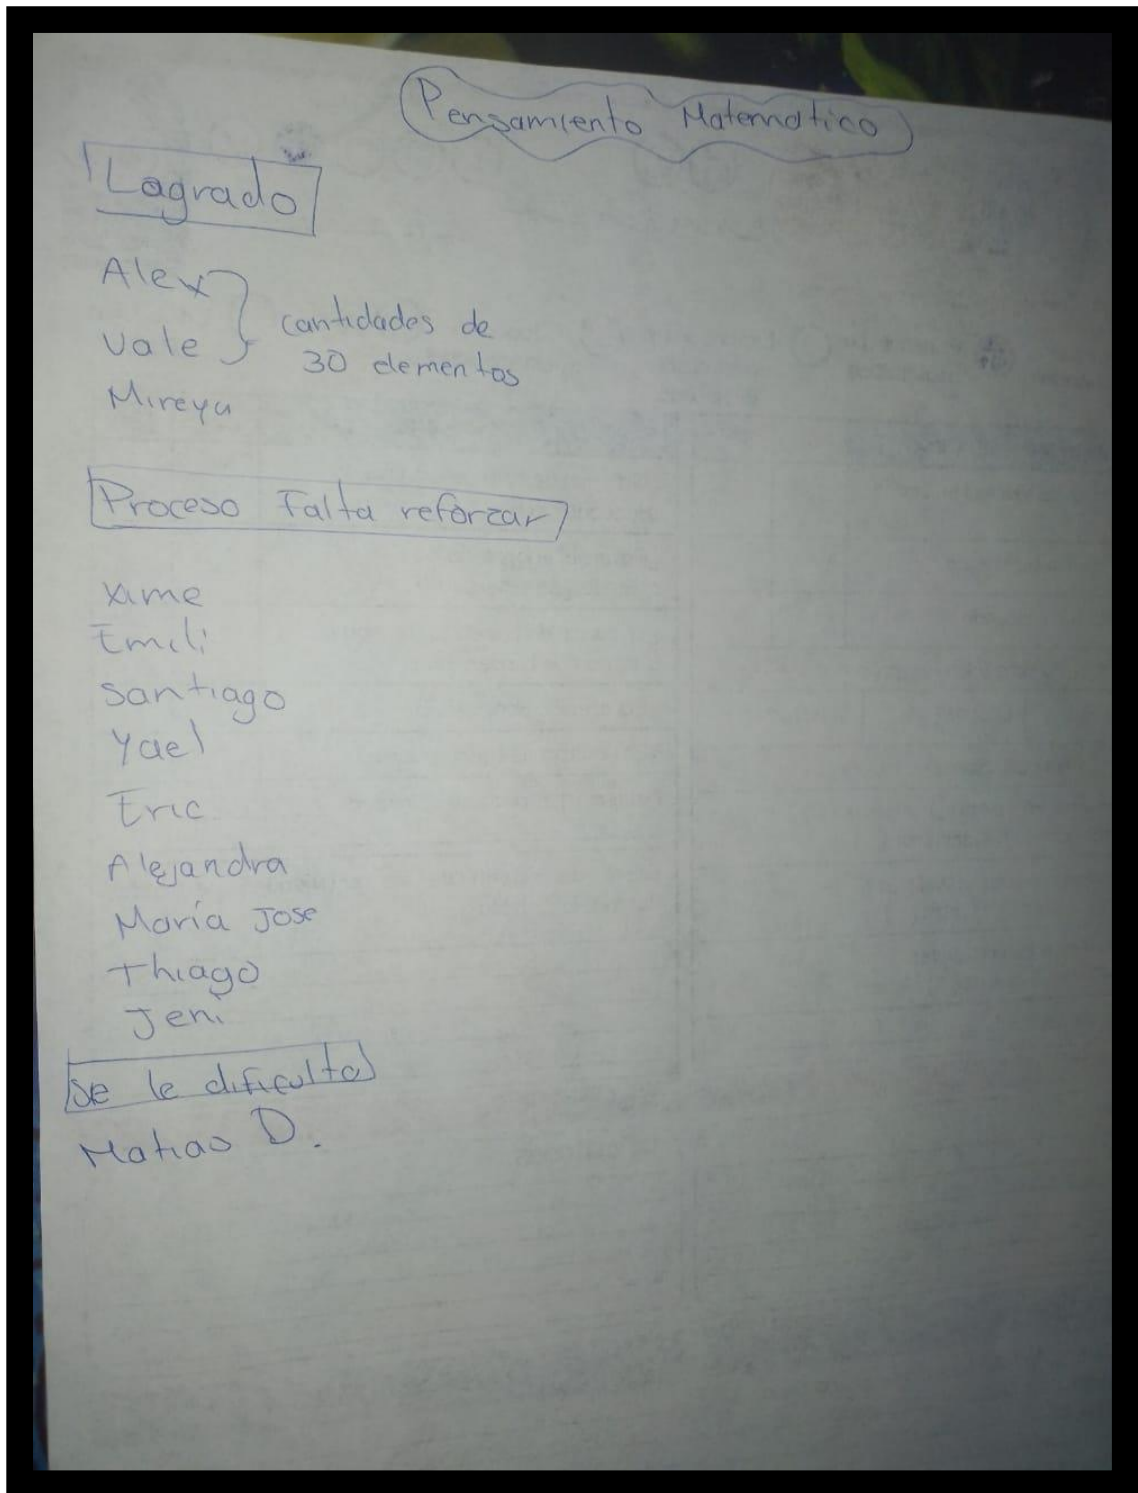 Pensamiento Matematico
Lagrado
Alex
Vale
cantidades de
30 elementos
Mireya
Proceso Falta reforzar
Xime
Emili
Santiago
Yael
Eric
Alejandra
María Jose
Thiago
Jeni
Se le dificulta
Matias D.